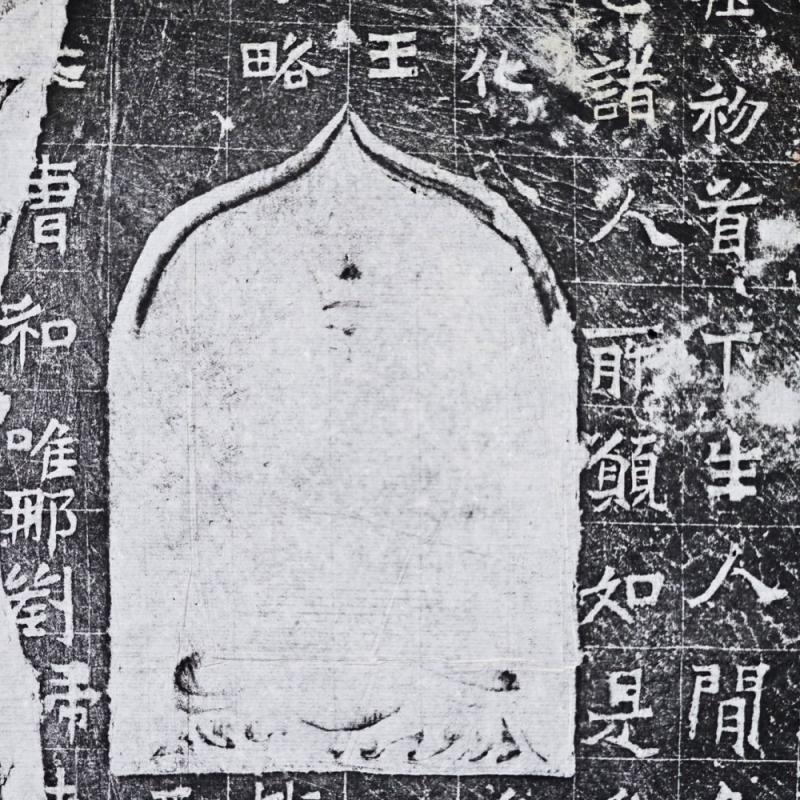 初首下生人間
諸人所願如是
化
王
略
曹和唯那劉